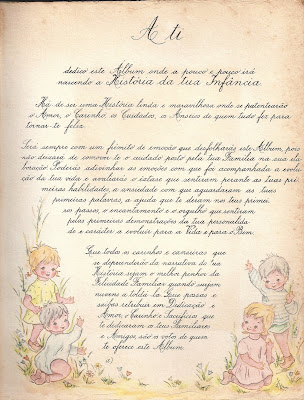 A ti
dedico este Album onde a pouco e pouco irá
nascendo a História da tua Infância
Há de ser uma História linda e maravilhosa onde se patentearão
o Amor, o Carinho, os Cuidados, os Anseios de quem tudo fez para
tornar-te feliz.
Será sempre com um frémito de emoção que desfolharás este Album, pois
não deixará de comover-te o cuidado posto pela tua Família na sua ela-
boração. Poderás adivinhar as emoções com que foi acompanhada a evolu-
ção da tua vida e avaliarás o extase que sentiram perante as tuas pri-
meiras habilidades, a ansiedade com que aguardaram as tuas
primeiras palavras, a ajuda que te deram nos teus primei-
ros passos, o encantamento e o orgulho que sentiram
pelas primeiras demonstrações da tua personalida-
de e caracter a evoluir para a Vida e para o Bem.
Que todos os carinhos e canseiras que
se depreenderão da narrativa da tua
História sejam o melhor penhor da
Felicidade Familiar quando surjam
nuvens a toldar da Que passas e
saibas retribuir em Dedicação e
Amor, o Carinho e Sacrifício que
te dedicaram os teus Familiares
e Amigos, são os votos de quem
te oferece este Album